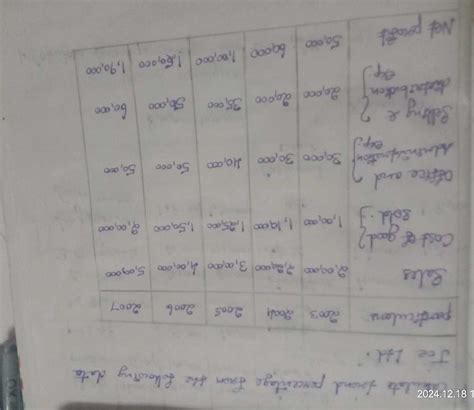 Calculate trend percentage from the following data
Ice Ltd.
particulars 2003 2004 2005 2006 2007
Sales 2,00,000 2,20,000 3,00,000 4,00,000 5,00,000
Cost of good } 1,00,000 1,10,000 1,25,000 1,50,000 2,00,000
sold. }
Office and } 30,000 30,000 40,000 50,000 50,000
Administration }
exp }
Selling & } 20,000 20,000 35,000 50,000 60,000
distribution }
exp }
Net profit 50,000 60,000 1,00,000 1,50,000 1,90,000
2024.12.18 1